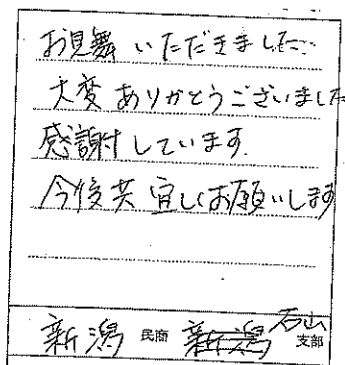 お見舞いただきました…
大変ありがとうございました
感謝しています.
今後共宜しくお願いします
新潟 民商 新潟 石山 支部